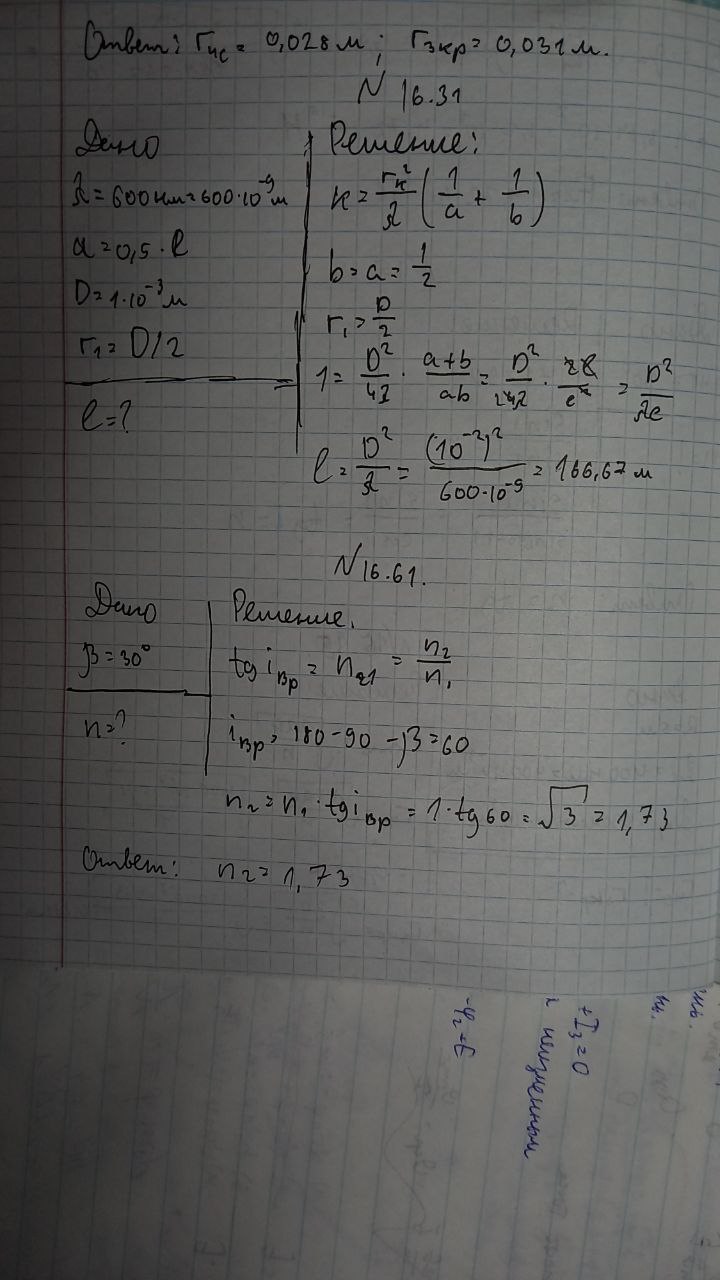 Ответ: rчс = 0,028 м; r3кр = 0,031 м.
N 16.31
Дано
λ=600нм=600·10⁻⁹м
a=0,5·l
D=1·10⁻³м
r₁=D/2
l=?
Решение:
к=rк²/λ(1/a + 1/b)
b=a=1/2
r₁=D/2
1=D²/4λ · a+b/ab = D²/ · 2l/ = D²/λl
l=D²/λ=(10⁻²)²/600·10⁻⁹=166,67 м
N16.61.
Дано
β=30°
n=?
Решение.
tg iвр = n21 = n₂/n₁
iвр = 180-90-β=60
n₂=n₁·tg iвр = 1·tg60=√3=1,73
Ответ: n₂=1,73
-φ₂+ε
и неизменный
+I₃=0